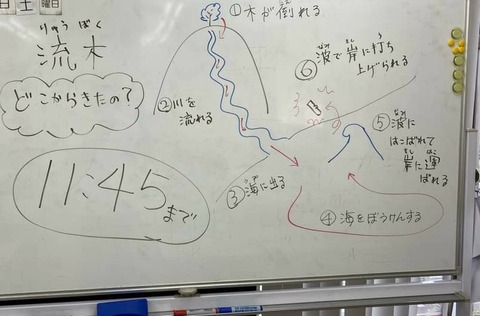 日 土 曜日
りゅう ぼく
流木
どこからきたの?
11:45まで
①木が倒れる
②川を
流れる
③海に出る
④海をぼうけんする
⑤波に
はこばれて
岸に運
ばれる
⑥波で岸に打ち
上げられる